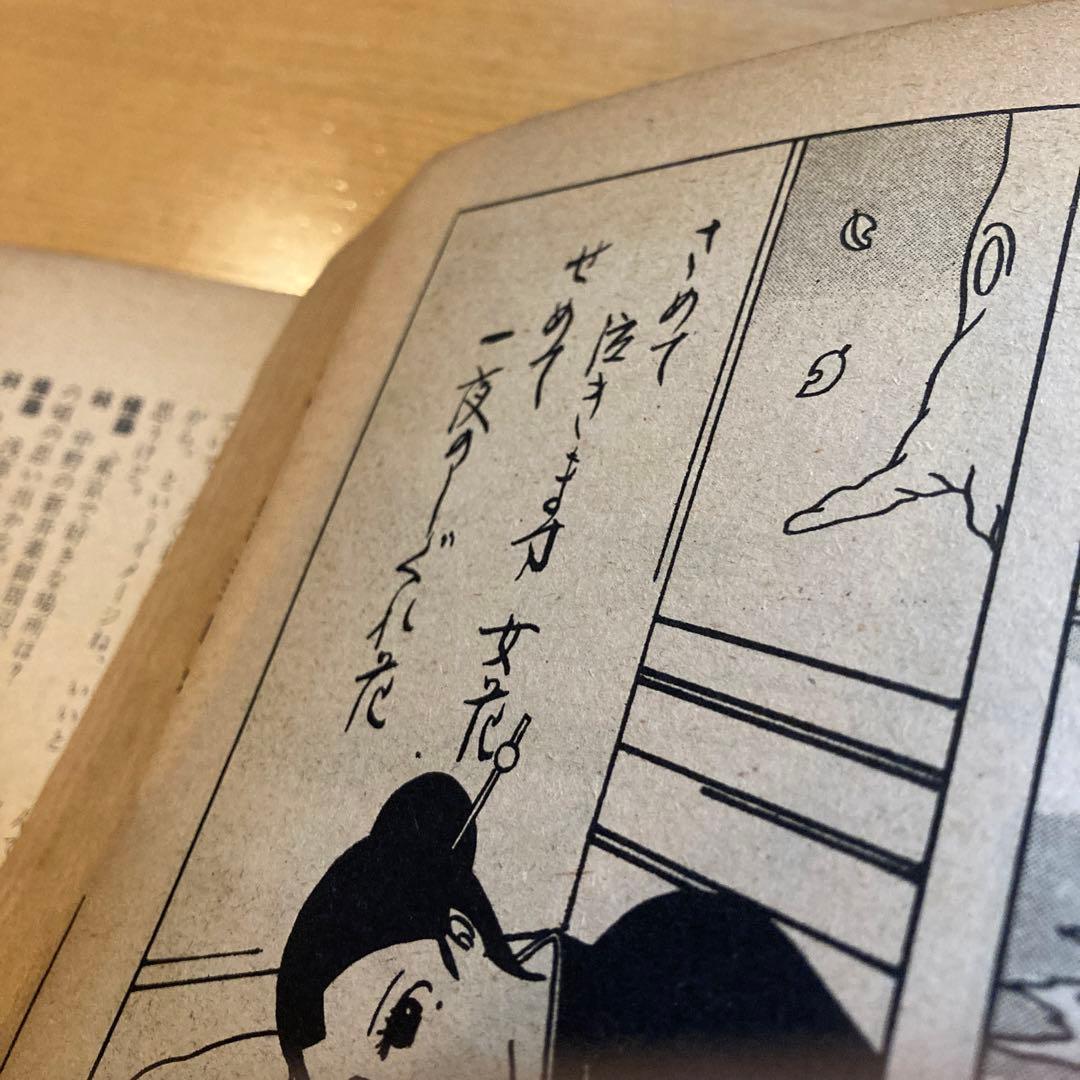 さめて
泣きます 女花
せめて
一夜の しぐれ花
というイメージね。いいと
思うけど。
林 東京で好きな場所は?
中野の新井薬師周辺。
の頃の思い出
林